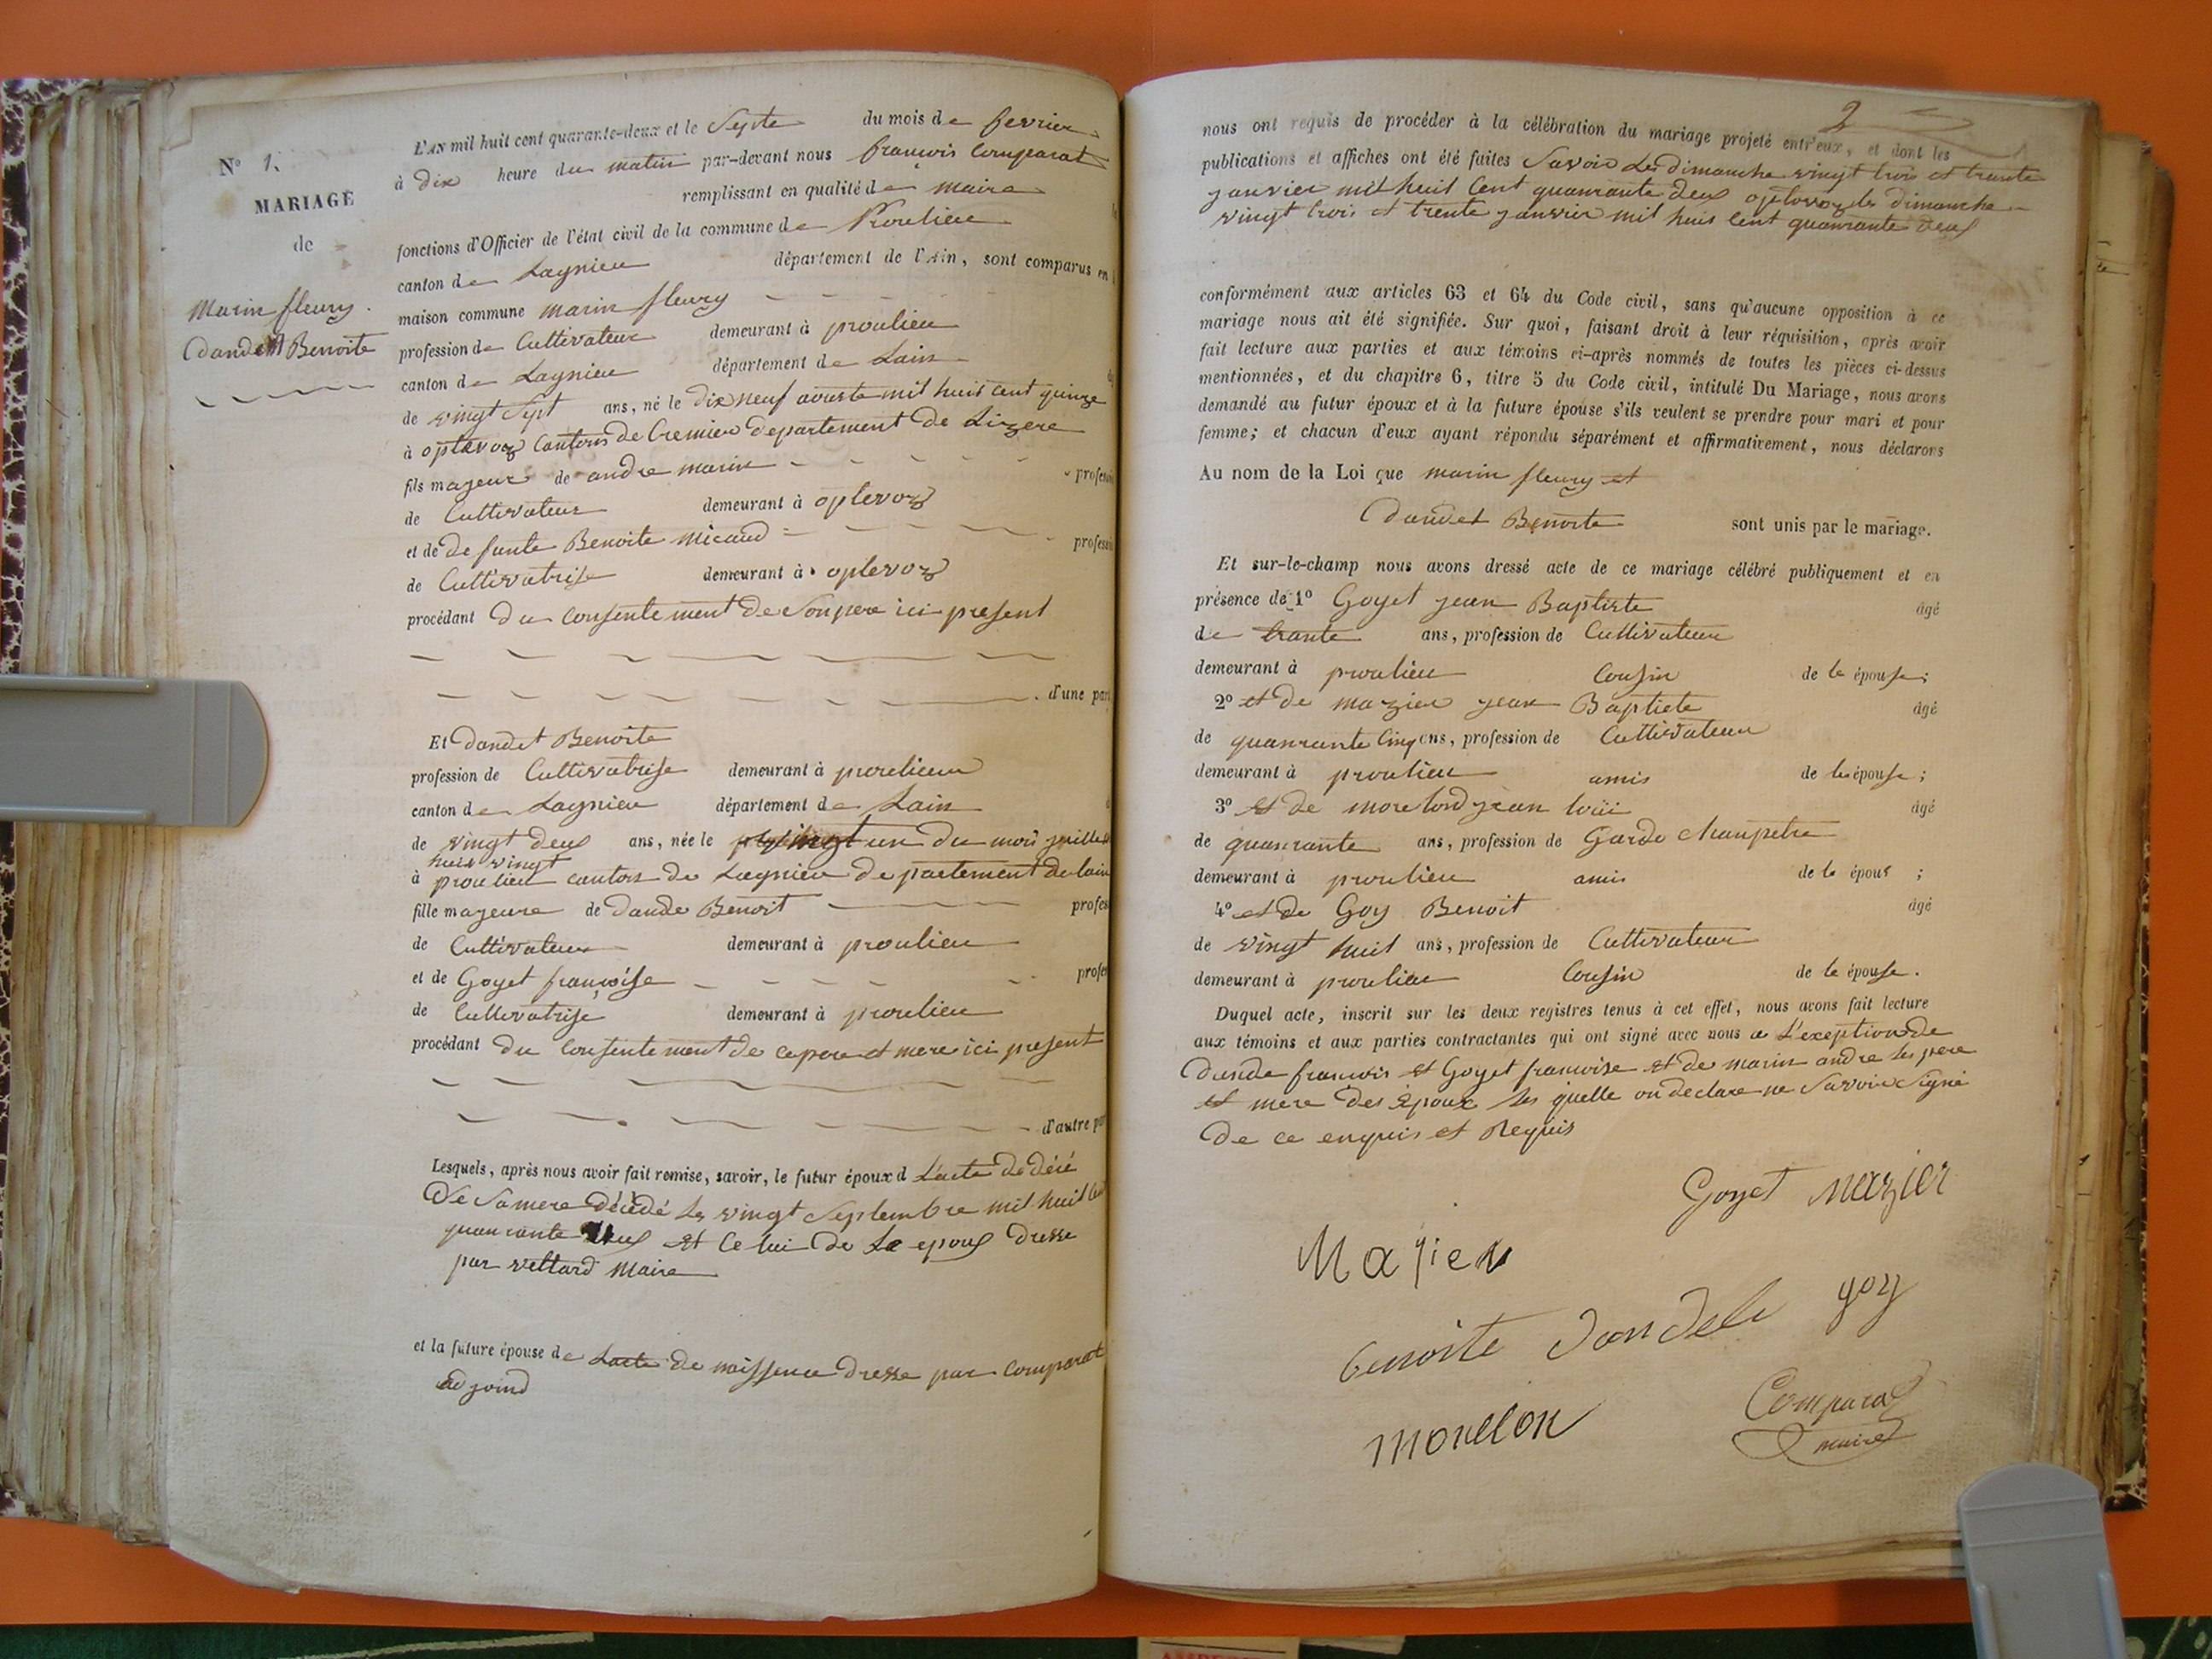 N° 1.
MARIAGE
de
Marin fleury.
Dandet Benoite
L'AN mil huit cent quarante-deux et le Septe du mois de fevrier
à dix heure du matin par-devant nous françois Comparat
remplissant en qualité de maire
fonctions d'Officier de l'état civil de la commune de Proulieu
canton de Lagnieu département de l'Ain, sont comparus en
maison commune marin fleury
profession de Cultivateur demeurant à proulieu
canton de Lagnieu département de Lain
de vingt Sept ans, né le dix neuf aouste mil huit cent quinze
à optevoz Cantons de Cremieu departement de Lizere
fils majeur de andre marin profession
de Cultivateur demeurant à optevoz
et de defunte Benoite micaud profession
de Cultivatrise demeurant à optevoz
procédant du Consentement de Son pere ici present
d'une part
Et Dandet Benoite
profession de Cultivatrise demeurant à proulieu
canton de Lagnieu département de Lain
de vingt deux ans, née le vingt un du mois juillet
huit vingt
à proulieu canton de Lagnieu departement de lain
fille majeure de Dande Benoit profes
de Cultivateur demeurant à proulieu
et de Goyet françoise profes
de Cultivatrise demeurant à proulieu
procédant du Consentement de ce pere et mere ici present
d'autre part
Lesquels, après nous avoir fait remise, savoir, le futur époux d L'acte de décé
De Samere décédé le vingt Septembre mil huit cent
quanrante et Celui de Le epoux dresse
par vettard Maire
et la future épouse de Lacte de naissence dresse par Comparat
adjoind
2
nous ont requis de procéder à la célébration du mariage projeté entr'eux, et dont les
publications et affiches ont été faites Savoir Les dimanche vingt trois et trante
janvier mil huit Cent quanrante deux optevoz les dimanche
vingt trois et trente janvier mil huis Cent quanrante deux
conformément aux articles 63 et 64 du Code civil, sans qu'aucune opposition à ce
mariage nous ait été signifiée. Sur quoi, faisant droit à leur réquisition, après avoir
fait lecture aux parties et aux témoins ci-après nommés de toutes les pièces ci-dessus
mentionnées, et du chapitre 6, titre 5 du Code civil, intitulé Du Mariage, nous avons
demandé au futur époux et à la future épouse s'ils veulent se prendre pour mari et pour
femme; et chacun d'eux ayant répondu séparément et affirmativement, nous déclarons
Au nom de la Loi que marin fleury et
Dandet Benoite sont unis par le mariage.
Et sur-le-champ nous avons dressé acte de ce mariage célébré publiquement et en
présence de 1° Goyet jean Baptiste âgé
de trante ans, profession de Cultivateur
demeurant à proulieu Cousin de le épouse;
2° et de mazier jean Baptiste âgé
de quanrante Cinq ans, profession de Cultivateur
demeurant à proulieu amis de les épouse;
3° et de jean loüi âgé
de quanrante ans, profession de Garde Chanpetre
demeurant à proulieu amis de le épous ;
4° et de Goy Benoit âgé
de vingt huit ans, profession de Cultivateur
demeurant à proulieu Cousin de le épouse.
Duquel acte, inscrit sur les deux registres tenus à cet effet, nous avons fait lecture
aux témoins et aux parties contractantes qui ont signé avec nous a L'exeption de
Dande françois et Goyet francoise et de marin andre les pere
et mere des époux les quelle on declare ne Savoir Signé
De ce enquis et Requis
Goyet mazier
benoite dandele goy
mourlon
Comparat
maire